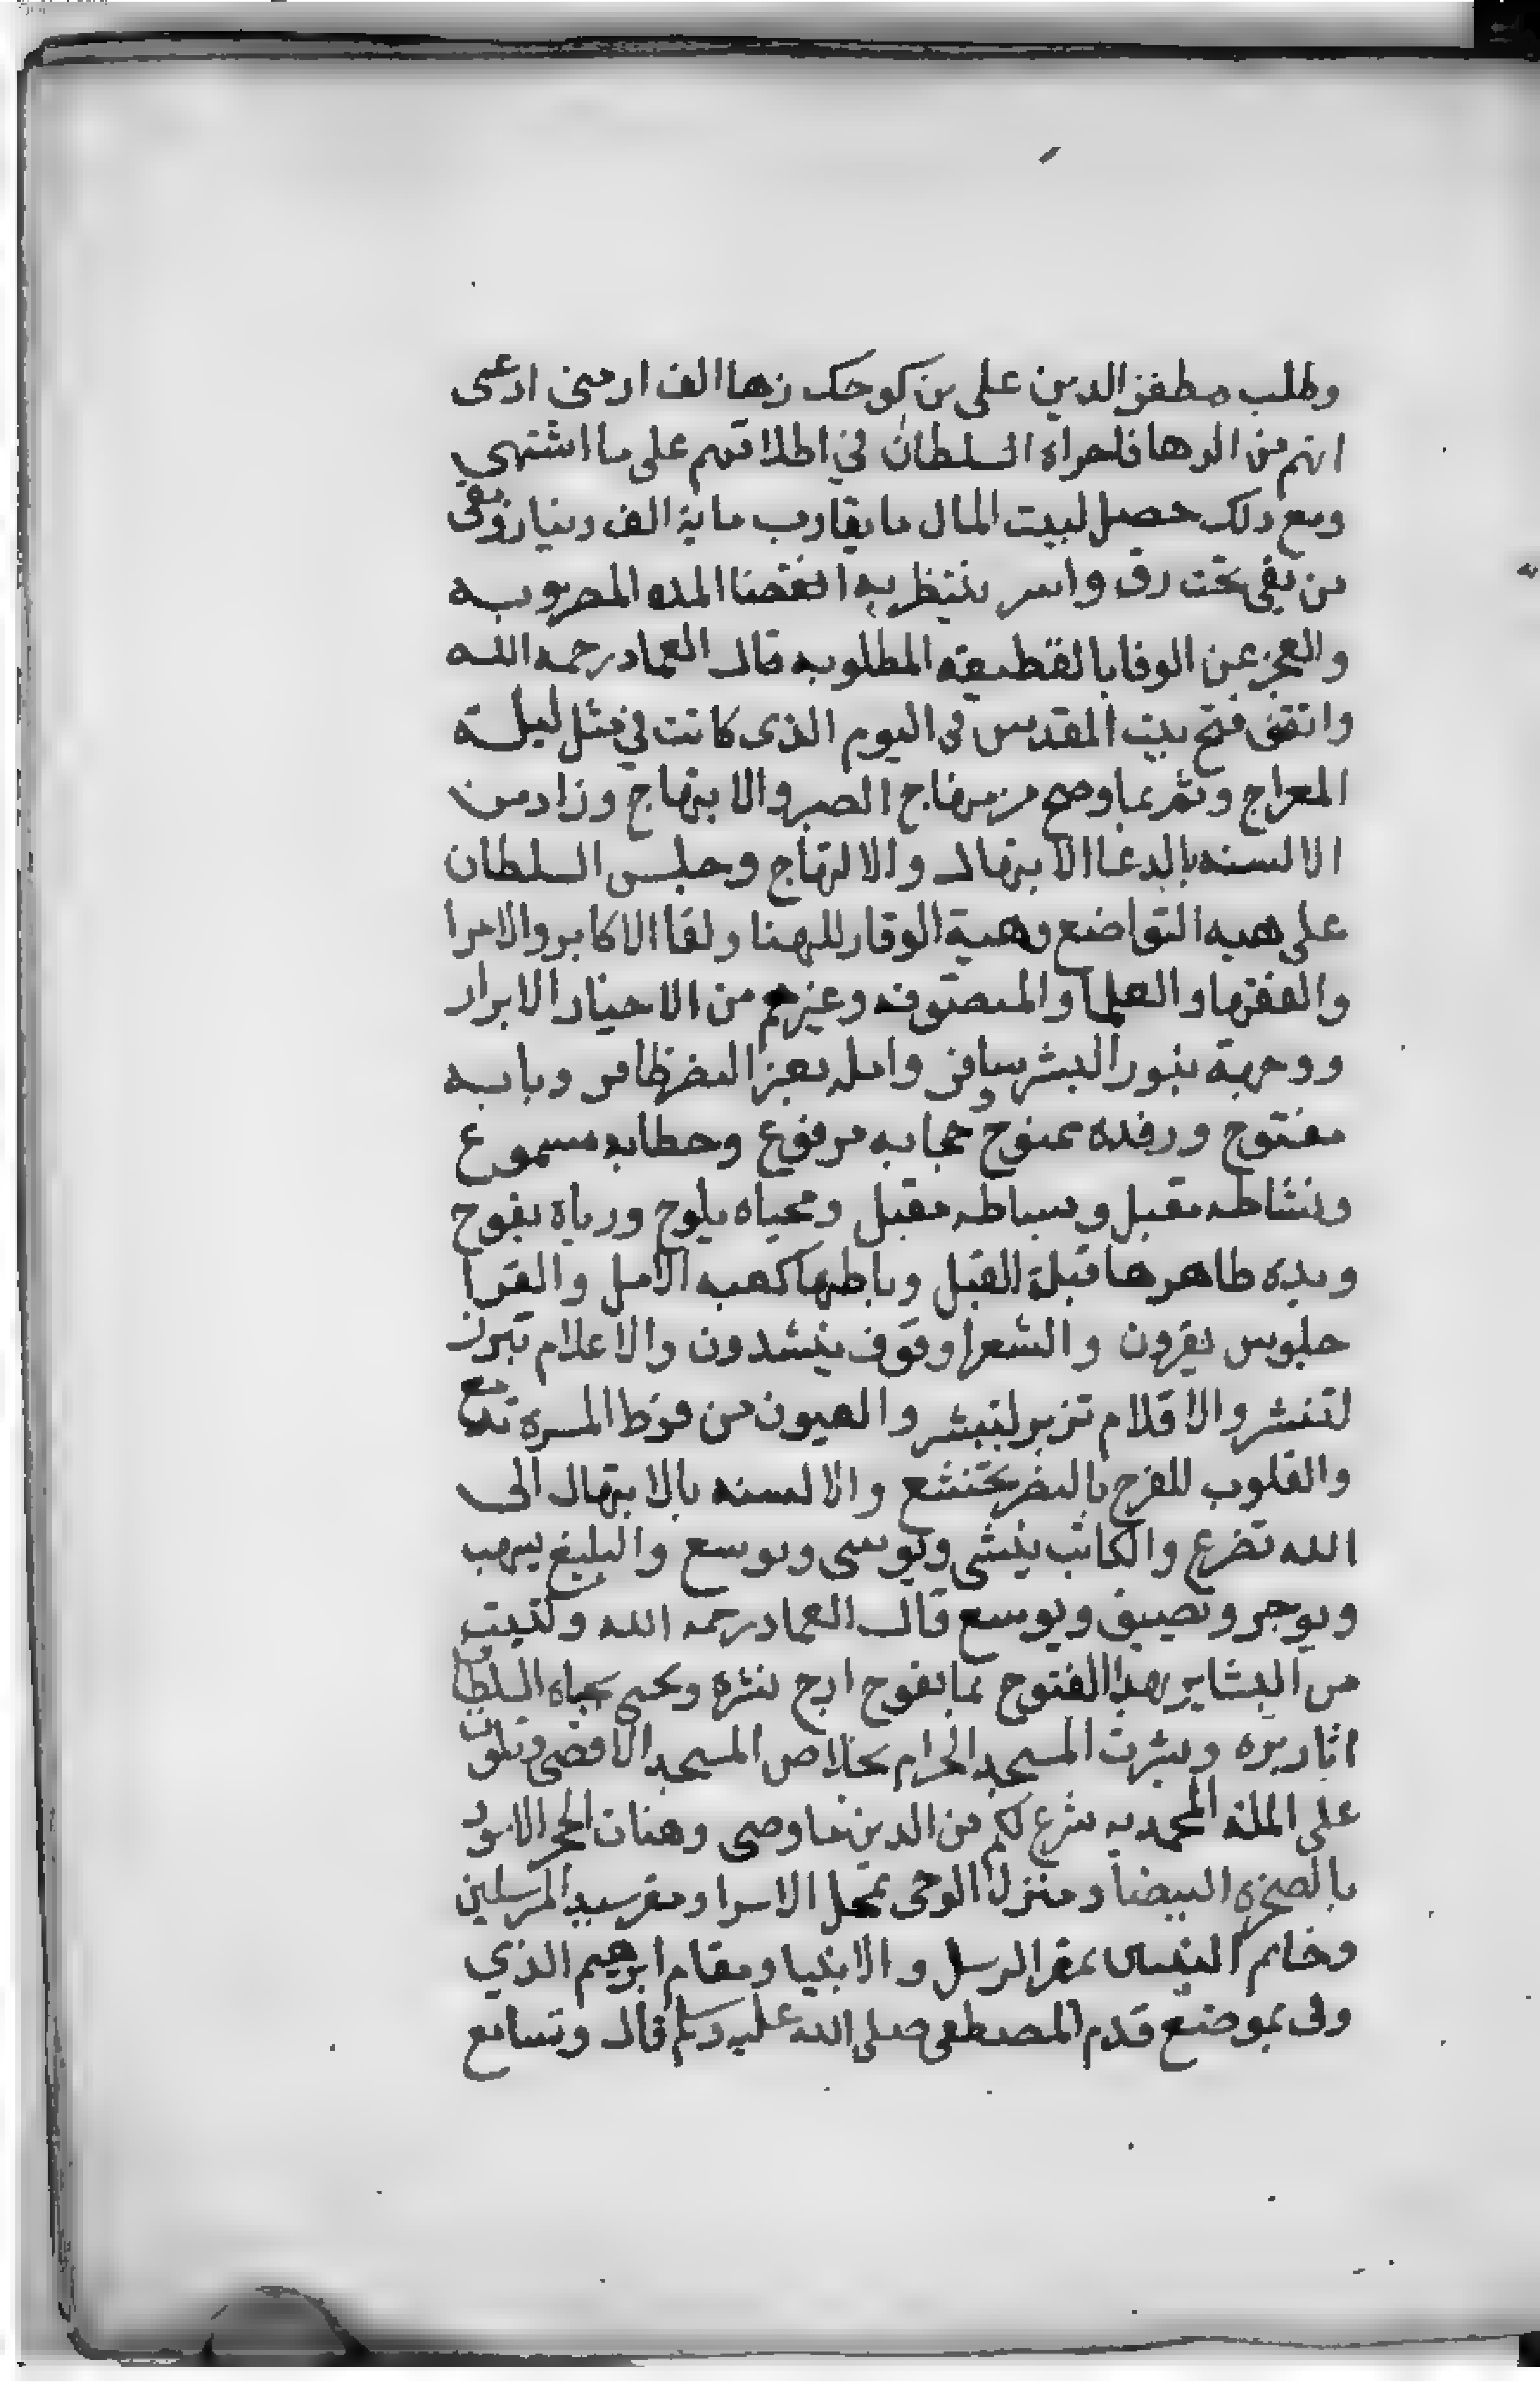 وطلب مظفر الدين على بن كوجك زها الف ارمنى ادعى
انهم من الرها فاجراه السلطان في اطلاقهم على ما اشتهى
ومع ذلك حصل لبيت المال ما يقارب ماية الف دينار وبقى
من بقى تحت رق واسر ينتظر به انقضا المده المضروبه
والعجز عن الوفا بالقطيعه المطلوبه قال العماد رحمه الله
واتفق فتح بيت المقدس فى اليوم الذى كانت في مثل ليلته
المعراج وتم بما وضح من منهاج النصر والابتهاج وزاد من
الالسنه بالدعا الابتهال والالتهاج وجلس السلطان
على هيه التواضع وهيبة الوقار للهنا ولقا الاكابر والامرا
والفقها والعلما والمتصوفه وغيرهم من الاخيار الابرار
ووجهه بنور البشر سافر وامله بعز النصر ظافر وبابه
مفتوح ورفده ممنوح وحجابه مرفوع وخطابه مسموع
ونشاطه مقبل وبساطه مقبل ومحياه يلوح ورياه يفوح
ويده ظاهرها قبلة القبل وباطنها كعبه الامل والقرا
جلوس يقرون والشعرا وقوف ينشدون والاعلام تبرز
لتنشر والاقلام تزبر لتبشر والعيون من فرط المسرة تدمع
والقلوب للفرح بالنصر تخشع والالسنه بالابتهال الى
الله تضرع والكاتب ينشى ويوشى ويوسع والبليغ يسهب
ويوجز ويضيق ويوسع قال العماد رحمه الله وكتبت
من البشاير بهذا الفتوح بما يفوح ارج نشره ويحيى بحياه السلطان
اثار بره وبشرت المسجد الحرام بخلاص المسجد الاقصى وتلوت
على الملة المحمديه شرع لكم من الدين ما وصى وهنات الحجر الاسود
بالصخرة البيضا ومنزل الوحى بمحل الاسرا ومقر سيد المرسلين
وخاتم النبيين بمقر الرسل والانبيا ومقام ابرهيم الذي
وفى بموضع قدم المصطفى صلى الله عليه وسلم قال وتسامع